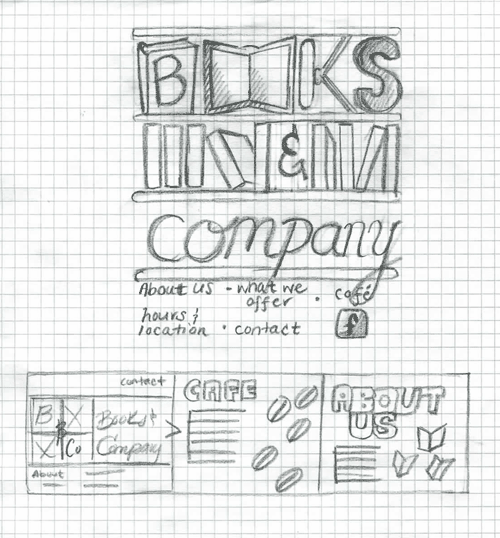 BOOKS
&
Company
About us - what we
offer · café
hours &
location · contact
f
contact
B X
X Co
B
Books &
Company
About
CAFE
ABOUT
US